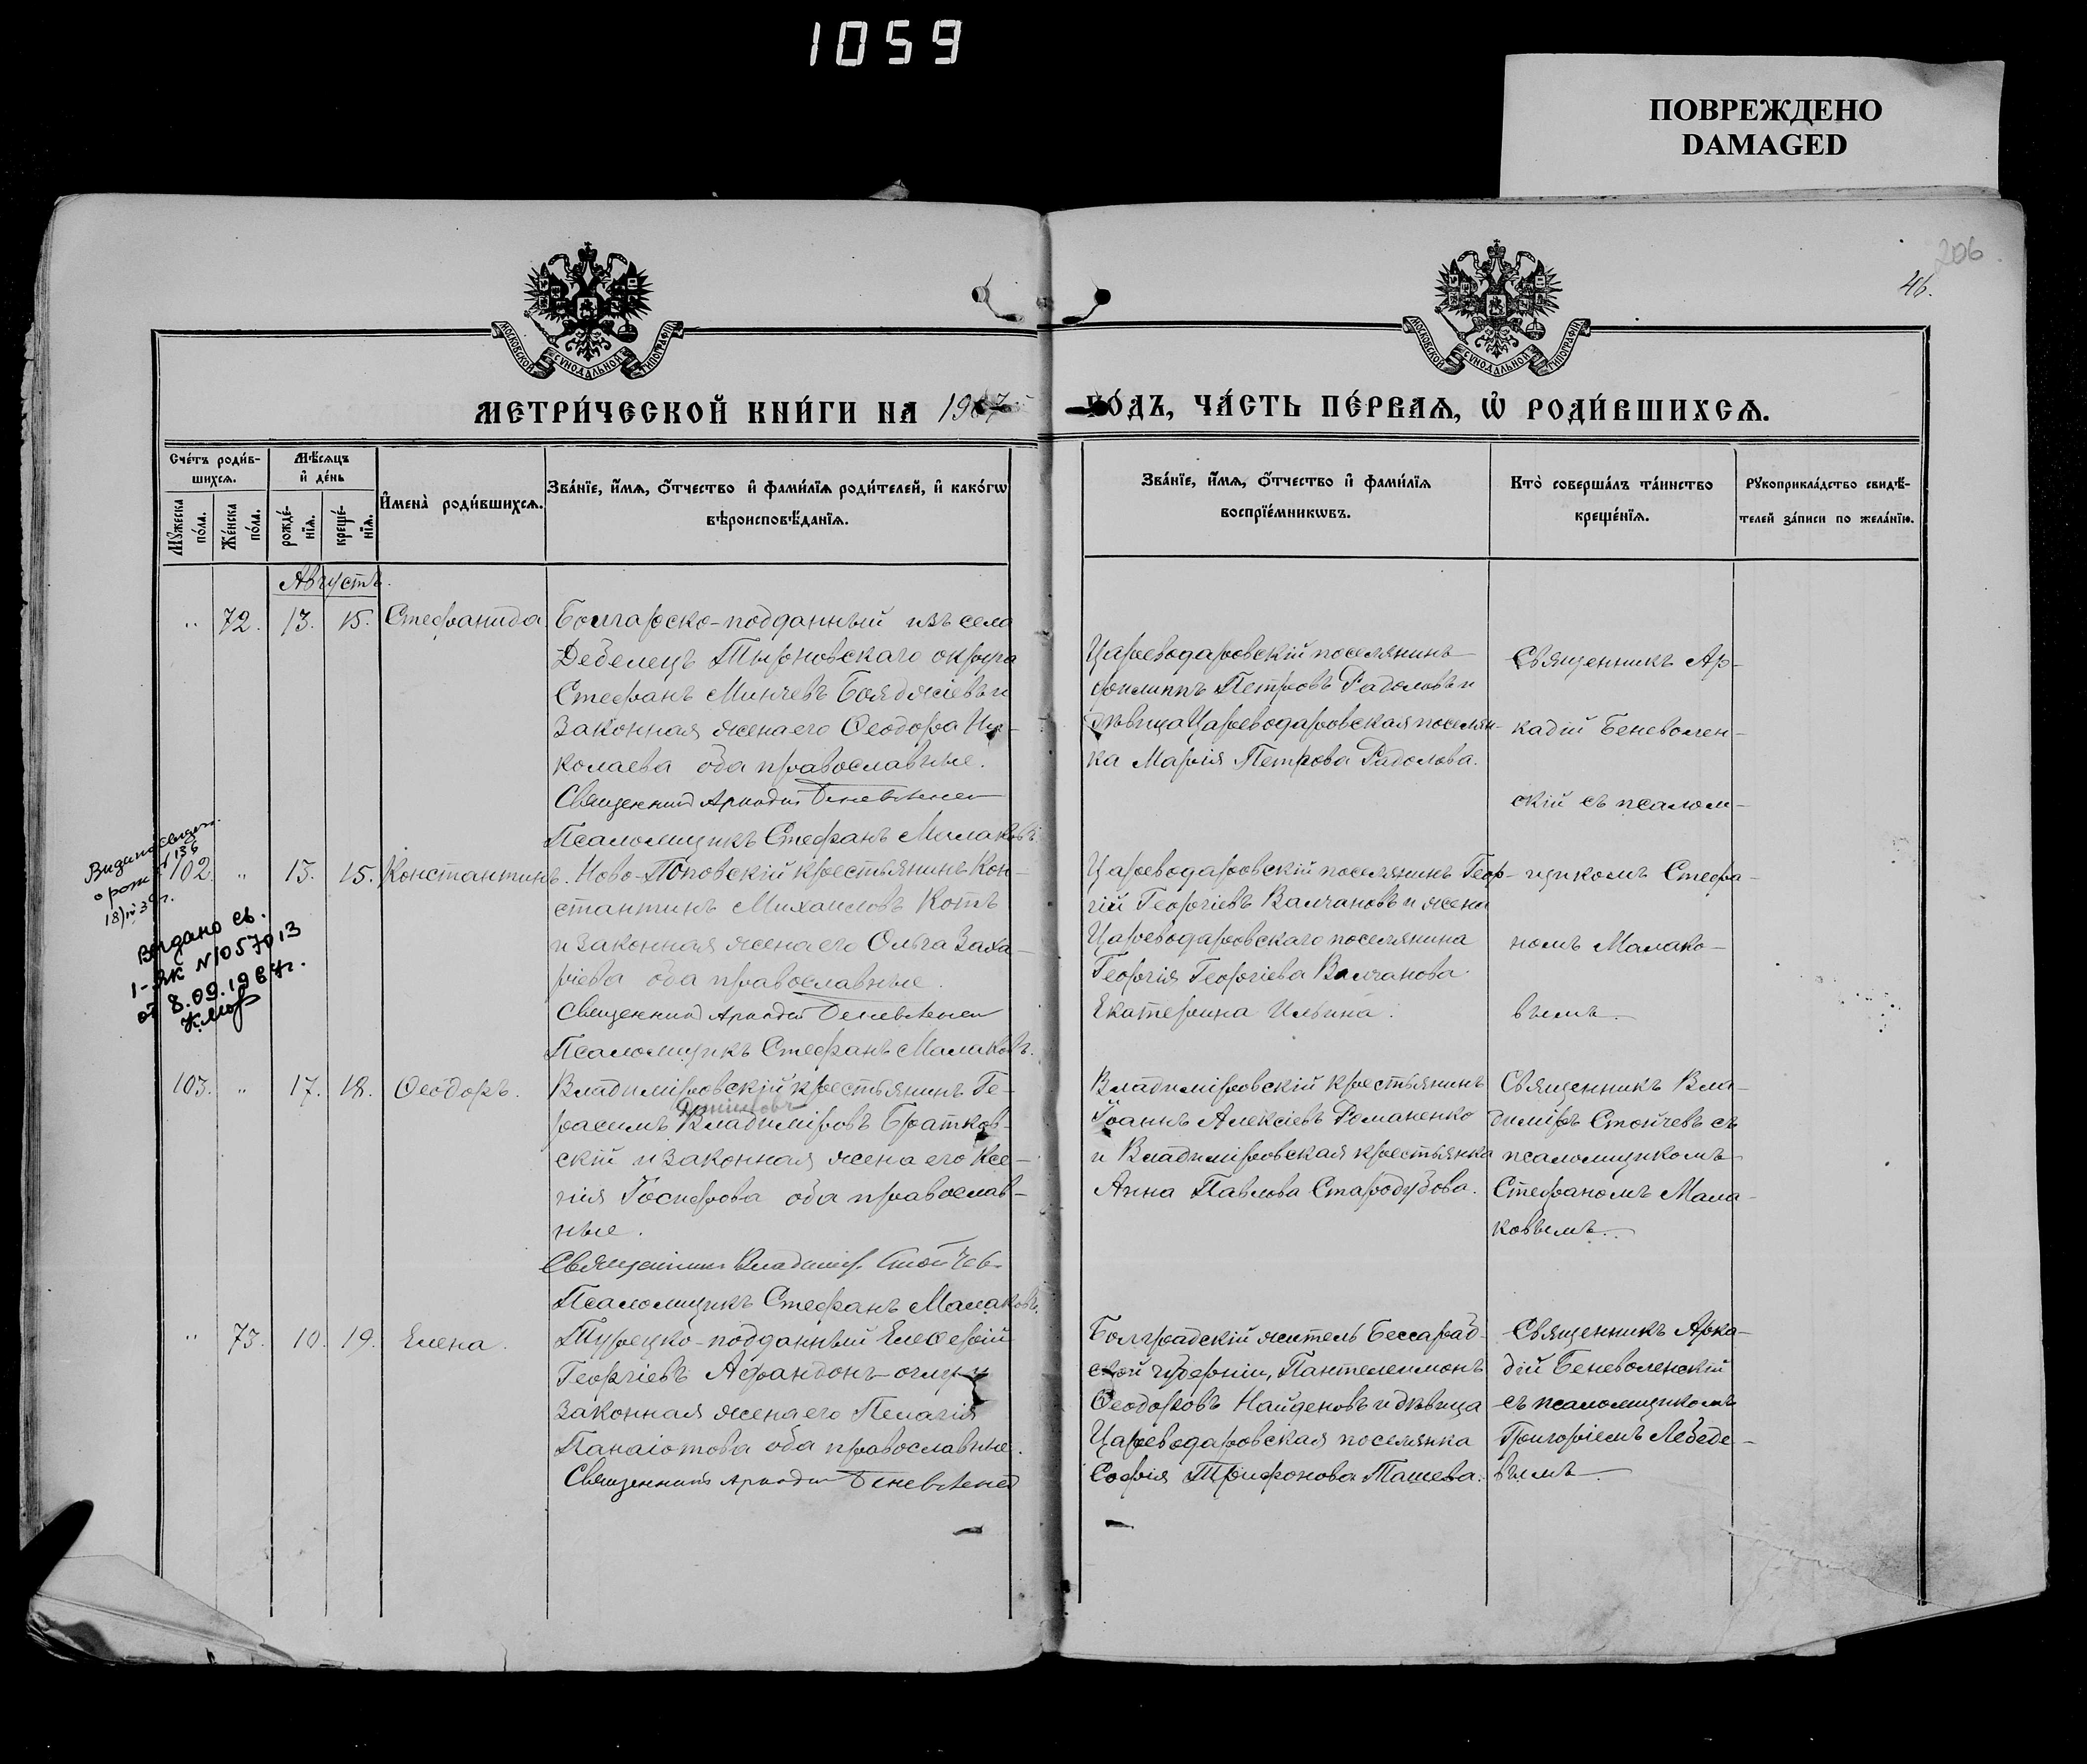 1059
ПОВРЕЖДЕНО
DAMAGED
206.
46.
МОСКОВСКОЙ СѴНОДАЛЬНОЙ ТИПОГРАФІИ
МОСКОВСКОЙ СѴНОДАЛЬНОЙ ТИПОГРАФІИ
МЕТРИ́ЧЕСКОЙ КНИ́ГИ НА 1907
ГО́ДЪ, ЧА́СТЬ ПЕ́РВАѦ, Ѡ҆ РОДИ́ВШИХСѦ.
Сче́тъ роди́в-
шихсѧ.
Мѣ́сѧцъ
и҆ де́нь
Мꙋ́жеска
по́ла.
Же́нска
по́ла.
рожде́-
нїѧ.
креще́-
нїѧ.
И҆мена̀ роди́вшихсѧ.
Зва́нїе, и҆́мѧ, ѻ҆́тчество и҆ фами́лїѧ роди́телей, и҆ како́гѡ
вѣроисповѣ́данїѧ.
Зва́нїе, и҆́мѧ, ѻ҆́тчество и҆ фами́лїѧ
воспрїе́мникѡвъ.
Кто̀ соверша́лъ та́инство
креще́нїѧ.
Рꙋкоприкла́дство свидѣ́-
телей за́писи по жела́нїю.
Августъ.
" 72. 13. 15. Стефанида
Болгарско-подданный изъ села
Дебелецъ Тырновскаго округа
Стефанъ Минчевъ Бояджіевъ и
законная жена его Ѳеодора Ни-
колаева оба православные.
Священникъ Аркадій Беневоленскій
Псаломщикъ Стефанъ Малаковъ.
Цареводаровскій поселянинъ
Филиппъ Петровъ Радоловъ и
дѣвица Цареводаровская поселян-
ка Марія Петрова Радолова.
Священникъ Ар-
кадій Беневолен-
скій съ псалом-
Видано свидет.
о рож. N 136
Выдано св.
1-ЯК N 1057013
от 8.09.1964г.
102. " 13. 15. Константинъ.
Ново-Поповскій крестьянинъ Кон-
стантинъ Михаиловъ Котъ
и законная жена его Ольга Заха-
ріева оба православные.
Священникъ Аркадій Беневоленскій
Псаломщикъ Стефанъ Малаковъ.
Цареводаровскій поселянинъ Геор-
гій Георгіевъ Валчановъ и жена
Цареводаровскаго поселянина
Георгія Георгіева Валчанова
Екатерина Ильина.
щикомъ Стефа-
номъ Малако-
вымъ.
103. " 17. 18. Ѳеодоръ.
Владиміровскій крестьянинъ Ге-
расимъ Владиміровъ Братков-
скій и законная жена его Ксе-
нія Іосифова оба православ-
ные.
Священникъ Владимір. Стойчев
Псаломщикъ Стефанъ Малаковъ.
Владиміровскій крестьянинъ
Іоаннъ Алексіевъ Романенко
и Владиміровская крестьянка
Анна Павлова Стародубова.
Священникъ Вла-
диміръ Стойчевъ съ
псаломщикомъ
Стефаномъ Мала-
ковымъ.
" 73. 10. 19. Елена.
Турецко-подданный Елеѳерій
Георгіевъ Афандонъ-оглу и
законная жена его Пелагія
Панаіотова оба православные.
Священникъ Аркадій Беневоленскій
Болградскій житель Бессараб-
ской губерніи, Пантелеимонъ
Ѳеодоровъ Найденовъ и дѣвица
Цареводаровская поселянка
Софія Трифонова Ташева.
Священникъ Арка-
дій Беневоленскій
съ псаломщикомъ
Григоріемъ Лебеде-
вымъ.